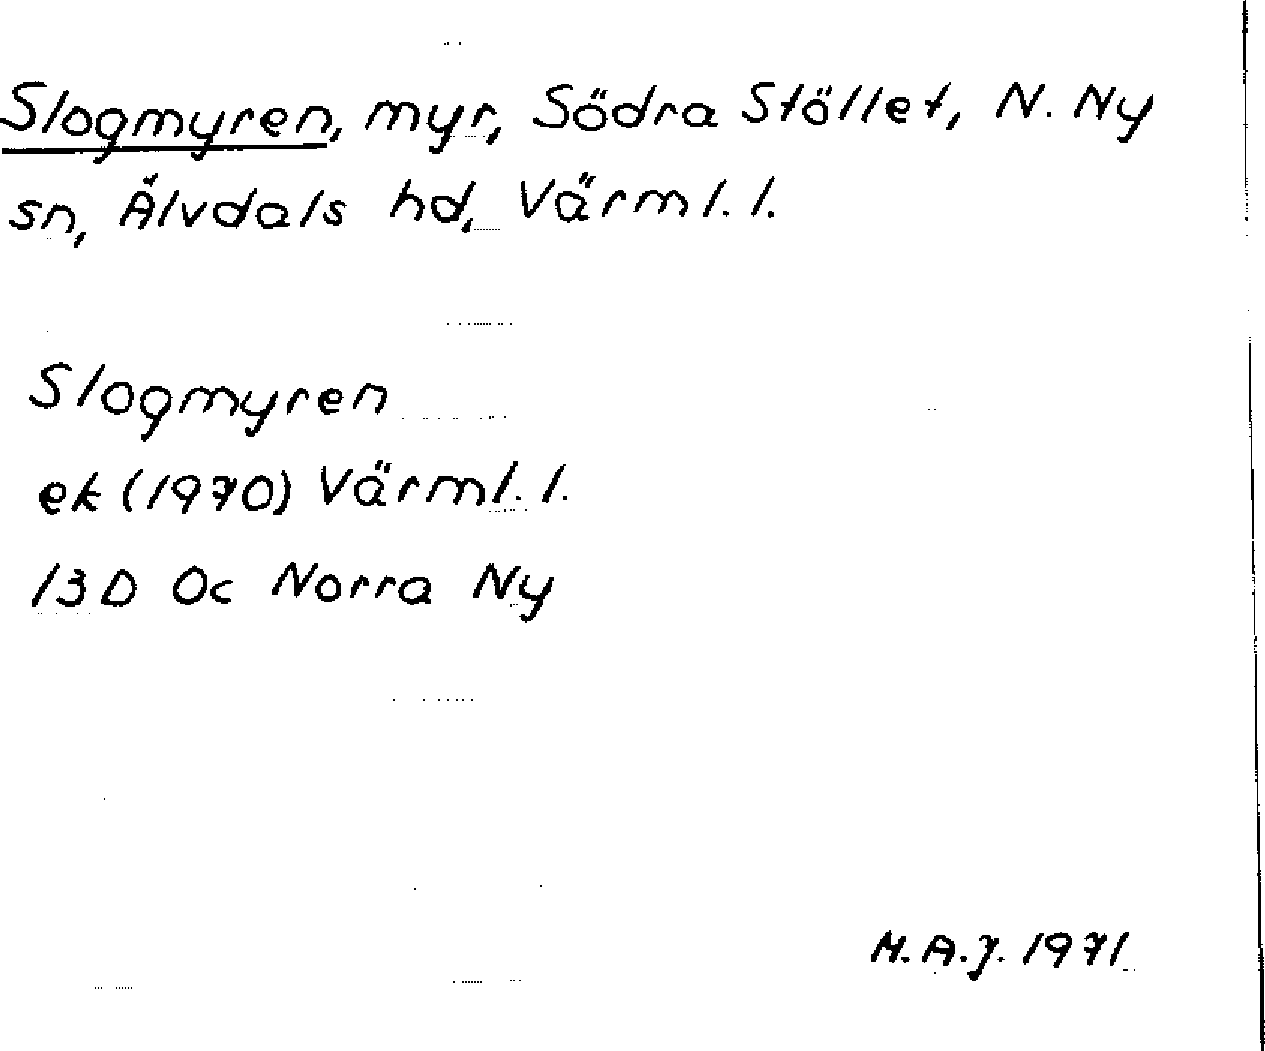 Slogmyren, myr, Södra Stöllet, N. Ny
sn, Älvdals hd, Värml. l.
Slogmyren
ek (1970) Värml. l.
13D 0c Norra Ny
M.A.J. 1971